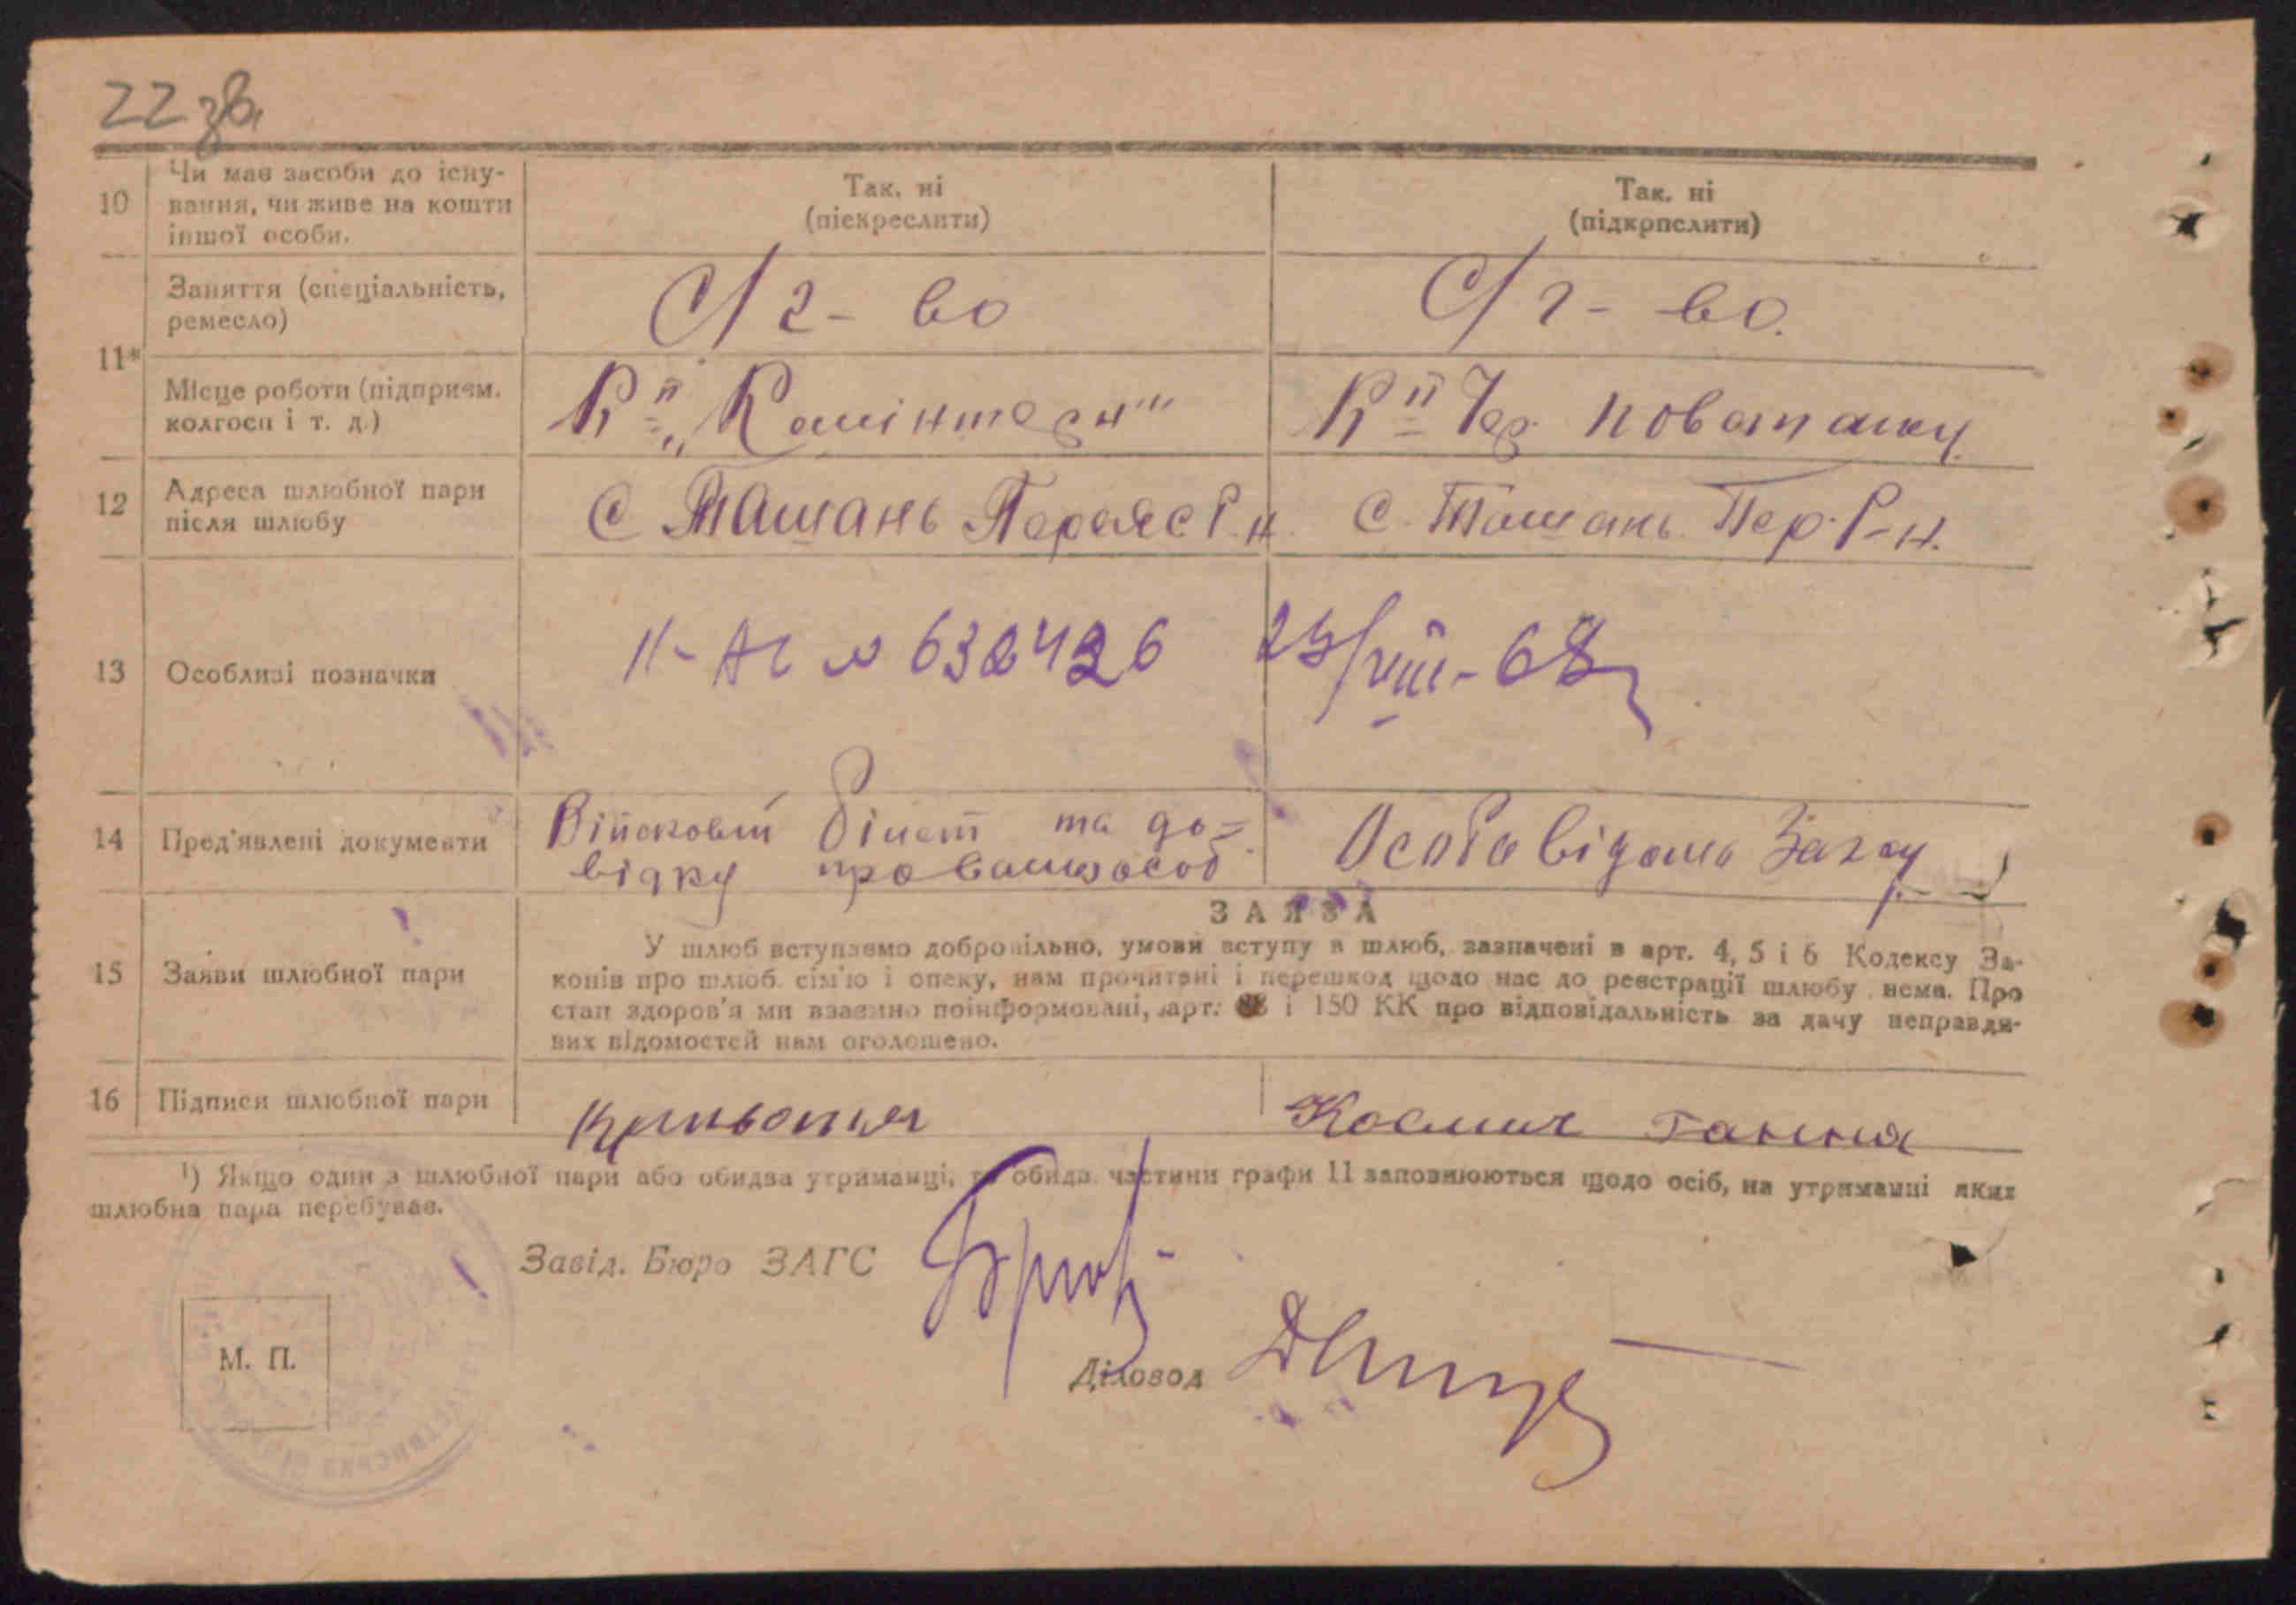 22 зв.
10 Чи має засоби до існу-
вання, чи живе на кошти
іншої особи.
Так, ні
(піекреслити)
Так, ні
(підкрпслити)
11*
Заняття (спеціальність,
ремесло)
С/г-во
С/г-во.
Місце роботи (підприєм.
колгосп і т. д.)
К-п „Комінтерн"
К-п Чер. новотану
12 Адреса шлюбної пари
після шлюбу
с Ташань Переяс Р-н.
с. Ташань Пер. Р-н.
13 Особливі позначки
II-АС № 632426 23/VIII-68
14 Пред'явлені документи
Військовий білет та до=
відку про
Особа відома Загсу
15 Заяви шлюбної пари
ЗАЯВА
У шлюб вступаємо добровільно, умови вступу в шлюб, зазначені в арт. 4, 5 і 6 Кодексу За-
конів про шлюб. сім'ю і опеку, нам прочитані і перешкод щодо нас до реєстрації шлюбу нема. Про
стан здоров'я ми взаємно поінформовані, арт. 88 і 150 КК про відповідальність за дачу неправди-
вих відомостей нам оголошено.
16 Підписи шлюбної пари
Космич Ганна
¹) Якщо один з шлюбної пари або обидва утриманці, то обидв. частини графи 11 заповнюються щодо осіб, на утриманні яких
шлюбна пара перебуває.
Завід. Бюро ЗАГС
Діловод
М. П.